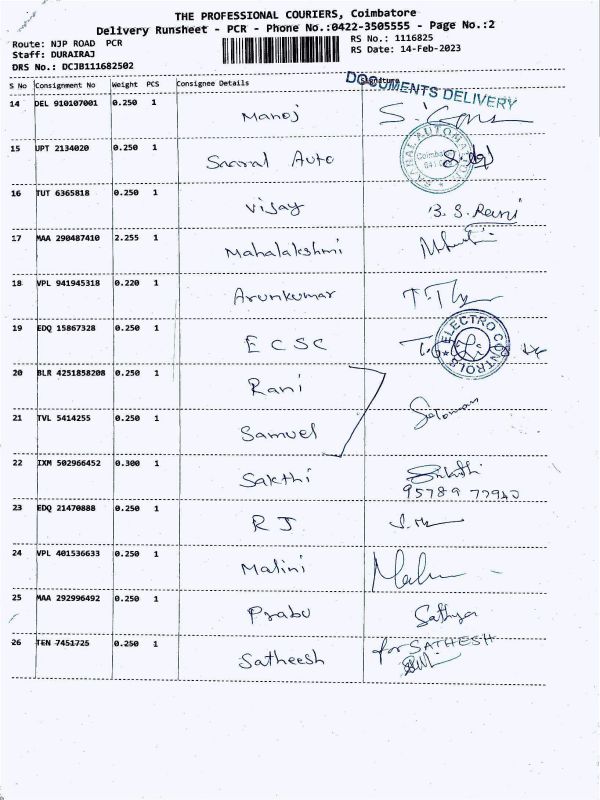 THE PROFESSIONAL COURIERS, Coimbatore
Delivery Runsheet - PCR - Phone No.:0422-3505555 - Page No.:2
Route: NJP ROAD PCR
RS No.: 1116825
Staff: DURAIRAJ
RS Date: 14-Feb-2023
DRS No.: DCJB111682502
S No Consignment No Weight PCS Consignee Details Signature
DOCUMENTS DELIVERY
14 DEL 910107001 0.250 1 Manoj
15 UPT 2134020 0.250 1 Saaral Auto
Coimbatore
16 TUT 6365818 0.250 1 Vijay B. S. Rani
17 MAA 290487410 2.255 1 Mahalakshmi
18 VPL 941945318 0.220 1 Arunkumar
19 EDQ 15867328 0.250 1 E C S C
ELECTRO CONTROLS
20 BLR 4251858208 0.250 1 Rani
Soloman
21 TVL 5414255 0.250 1 Samuel
22 IXM 502966452 0.300 1 Sakthi Sakthi
95789 77940
23 EDQ 21470888 0.250 1 R J
24 VPL 401536633 0.250 1 Malini
25 MAA 292996492 0.250 1 Prabu Sathya
26 TEN 7451725 0.250 1 Satheesh for SATHESH